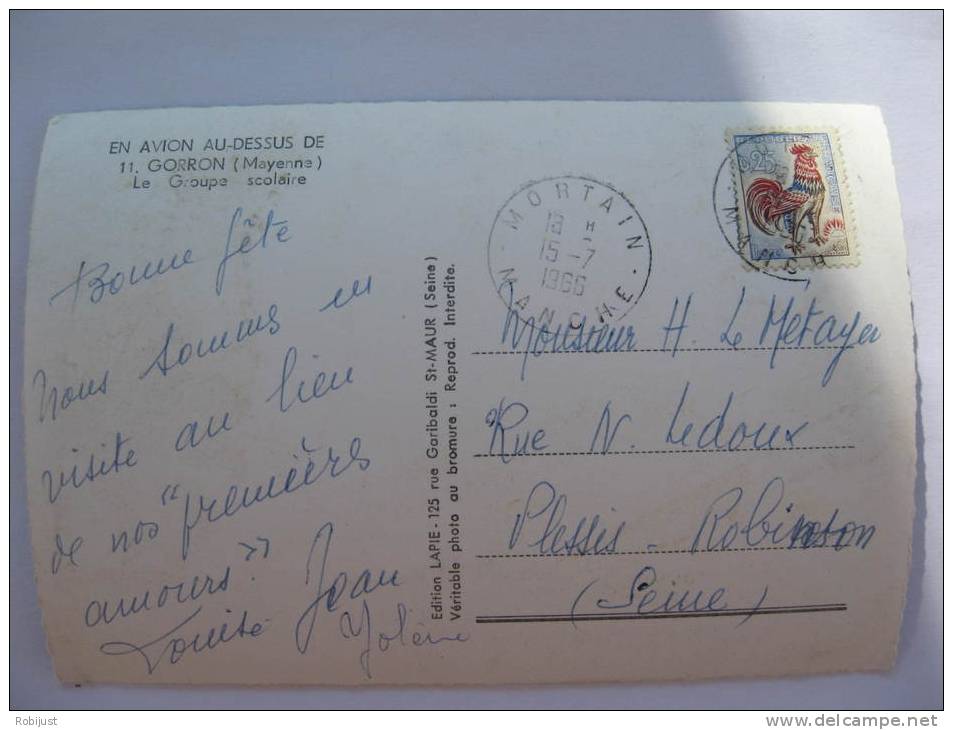 EN AVION AU-DESSUS DE
11. GORRON (Mayenne)
Le Groupe scolaire
Bonne fête
Nous sommes en
visite au lieu
de nos "premières
amours"
Louise Jean
Yolène
Edition LAPIE - 125 rue Garibaldi St-MAUR (Seine)
Véritable photo au bromure : Reprod. Interdite.
MORTAIN
18 H
15-7
1966
MANCHE
0,25
Monsieur H. Le Métayer
Rue N. Ledoux
Plessis - Robinson
(Seine)
Robijust
www.delcampe.net